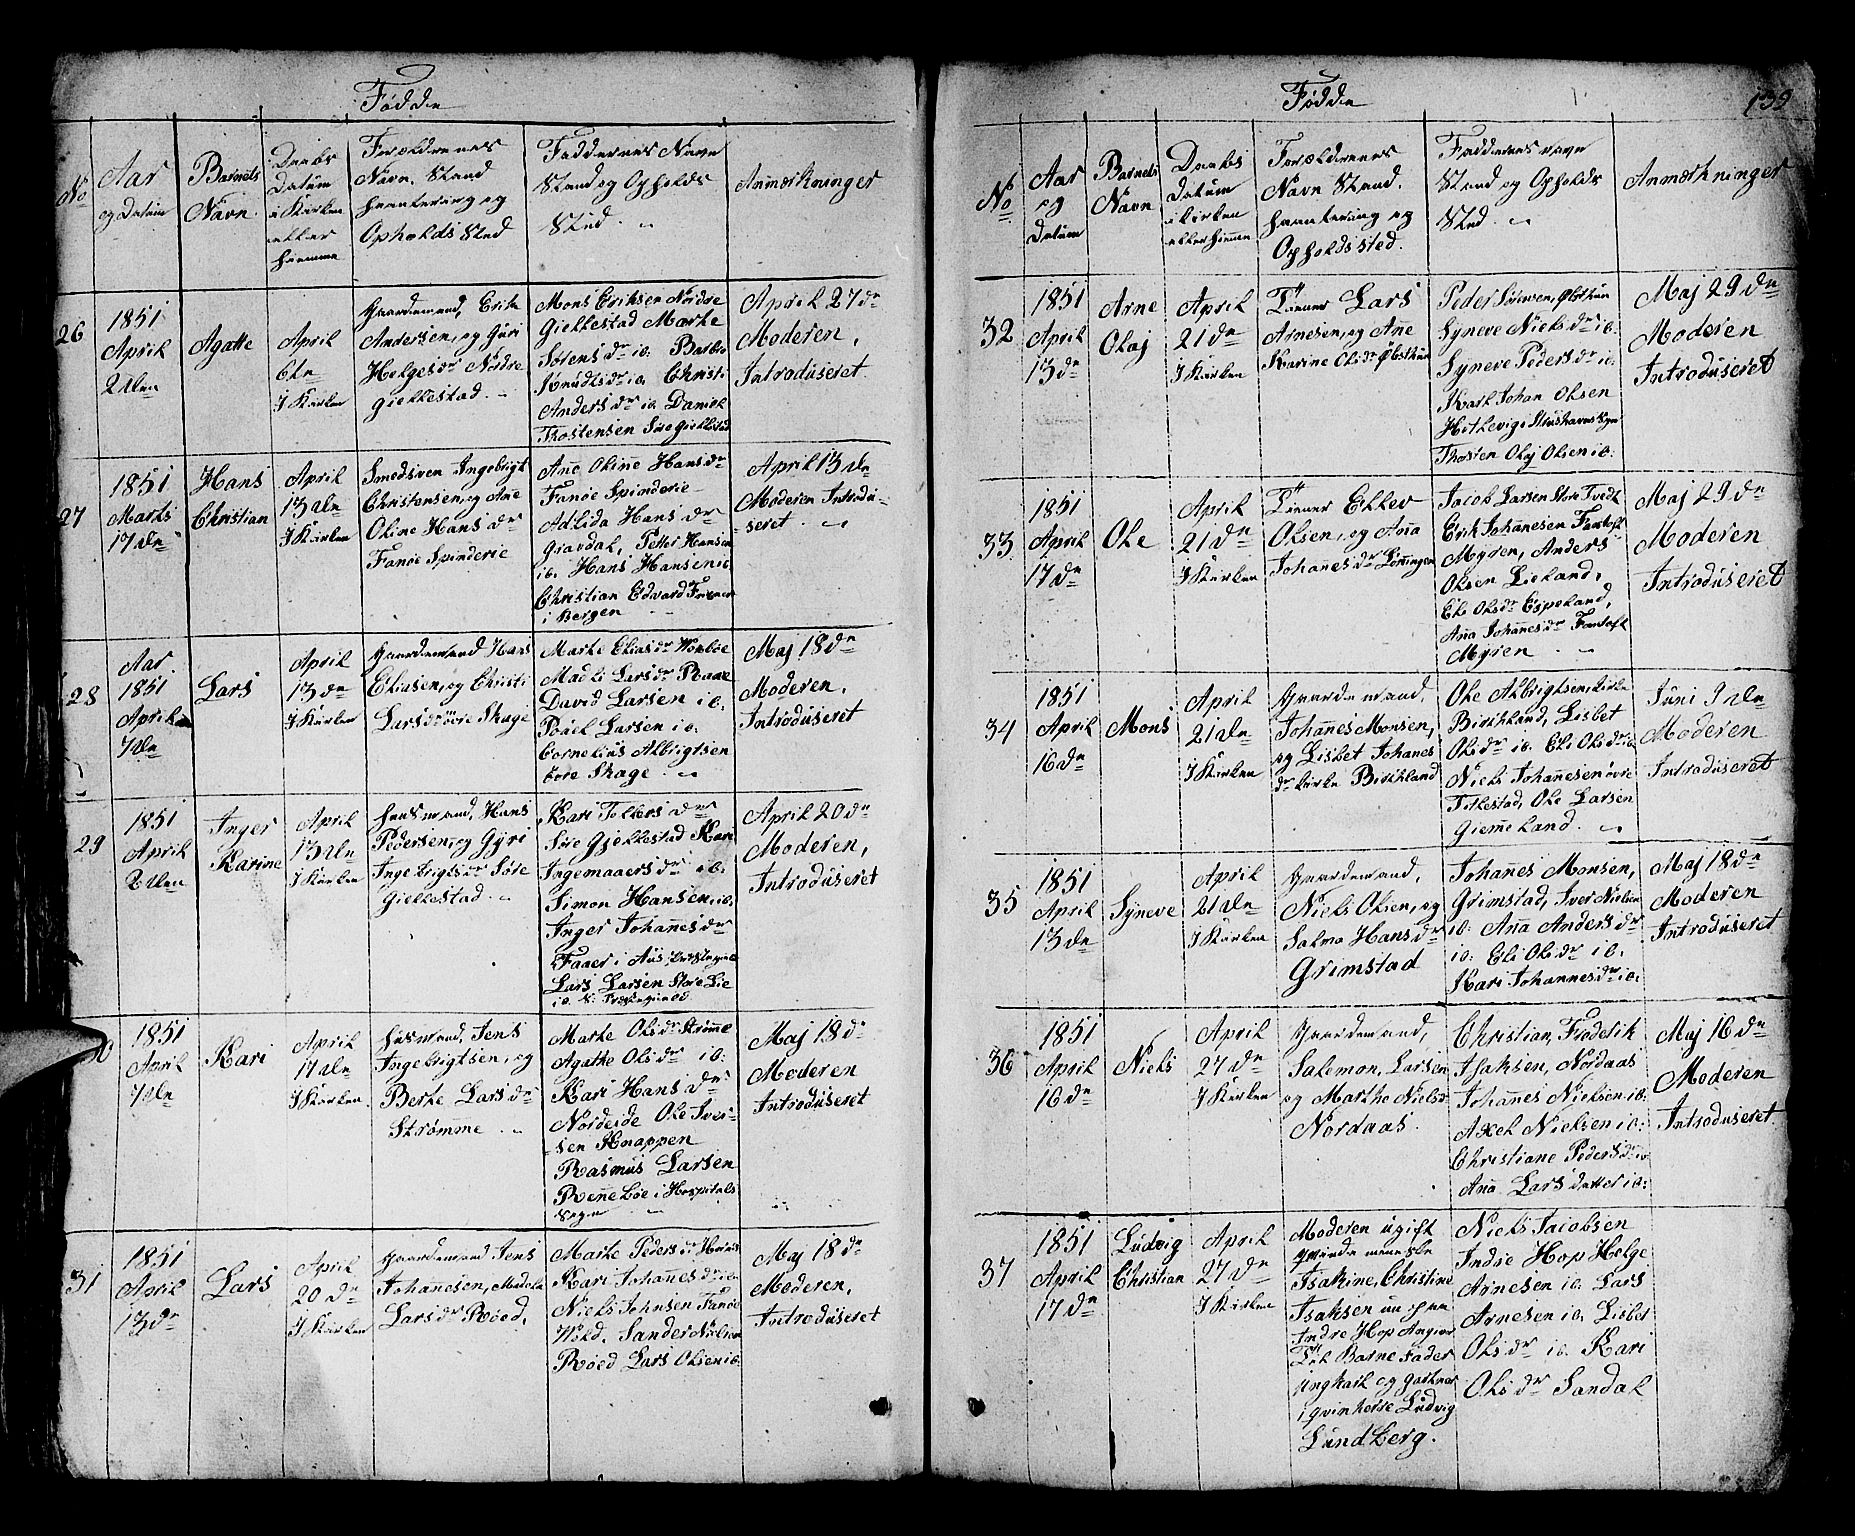 Födde
No
Aar
og Datum
Barnets
Navn.
Daabs
Datum
i Kirken
eller
hiemme
Forældrenes
Navn, Stand
haantering og
Opholds Sted
Faddernes Navn
Stand og Opholds
Sted.
Anmærkninger
26
1851
April
2den
Agatte
April
6te
I Kirken
Gaardemand, Erik
Andersen, og Guri
Helgesdr Nordre
Giellestad.
Mons Eriksen Nordre
Giellestad Marte
Sørensdr ib. Barbro
Knudtsdr ib. Christi
Andersdr ib. Daniel
Thostensen Søre Giellestad
April 27de
Moderen,
Introduseret.
27
1851
Marts
17de
Hans
Christian
April
13de
I Kirken
Smedsven Ingebrigt
Christensen, og Ane
Oline Hansdr
Fanøe Spinderie
Ane Oline Hansdr
Fanöe Spinderie
Adlida Hansdr
Gravdal, Petter Hansen
ib. Hans Hansen ib.
Christian Edvard
i Bergen
April 13de
Moderen Introdu-
-seret.
28
Aar
1851
April
7de
Lars
April
13de
I Kirken
Gaardemand Hans
Eliasen, og Christi
Larsdr övre Skage
Marte Eliasdr
Madli Larsdr
David Larsen ib.
Poul Larsen ib.
Cornelius Albrigtsen
övre Skage.
Maj 18de
Moderen,
Introduseret
29
1851
April
2den
Inger
Karine
April
13de
I Kirken
Husmand, Hans
Pedersen, og Gÿri
Ingebrigtsdr Søre
Giellestad.
Kari Tollersdr
Søre Gjellestad Kari
Ingemaarsdr ib.
Simon Hansen, ib.
Inger Johanesdr
Faaer i
Lars Larsen Store Lie
April 20de
Moderen,
Introduseret
1851
April
7de
Kari
April
17de
I Kirken.
Husmand, Jens
Ingebrigtsen, og
Berte Larsdr
Strømme
Marte Olsdr Strømme
Agathe Olsdr ib.
Kari Hansdr
Nordeide Ole Iver-
sen Knappen
Rasmus Larsen
i Hospitals
Maj 18de
Moderen
Introduseret
31
1851
April
13de
Lars
April
20de
I Kirken
Gaardemand Jens
Johanesen, Madela
Larsdr Röed,
Marte Pedersdr
Kari Johanesdr ib.
Niels Johnsen Fanöe
Sander Nielsen
Röed Lars Olsen ib.
Maj 18de
Moderen,
Introduseret
139
Födde
No
Aar
og
Datum
Barnets
Navn
Daabs
Datum
i kirken
eller hiemme
Forældrenes
Navn Stand,
haantering og
Opholdssted.
Faddernes navn
Stand og Opholds
Sted.
Anmærkninger
32
1851
April
13de
Arne
Olaj
April
21de
I Kirken
Tiener Lars
Arnesen, og Ane
Karine Olsdr Øbsthun
Peder Sörensen, Øbsthun
Syneve Nielsdr ib.
Syneve Pedersdr ib.
Karl Johan Olsen
Thosten Olaj Olsen ib:
Maj 29de
Moderen
Introduseret
33
1851
April
17de
Ole
April
21de
I Kirken
Tiener Ellev
Olsen, og Anna
Johanesdr Lönningen
Jacob Larsen Store Tvedt
Erik Johannesen Fantoft
Myren, Anders
Olsen Lieland,
Eli Olsdr Espeland,
Ana Johannesdr Fantoft
Myren
Maj 29de
Moderen
Introduseret
34
1851
April
16de
Mons
April
21de
I Kirken
Gaardemand,
Johannes Monsen,
og Lisbet Johanes
dr Kirke Birkeland
Ole Albrigtsen, Kirke
Birkeland, Lisbet
Olsdr ib. Eli Olsdr ib.
Niels Johannesen övre
Titlestad, Ole Larsen
Giemeland.
Juni 9de
Moderen
Introduseret
35
1851
April
13de
Syneve
April
21de
I Kirken
Gaardemand,
Niels Olsen, og
Salmo Hansdr
Grimstad
Johannes Monsen,
Grimstad, Iver Nielsen
ib: Ana Andersdr
ib: Eli Olsdr ib.
Kari Johannesdr ib:
Maj 18de
Moderen
Introduseret
36
1851
April
16de
Niels
April
27de
I Kirken
Gaardemand,
Salemon, Larsen
og Marthe Nielsd
Nordaas.
Christian, Frodelik
Isaksen, Nordaas
Johannes Nielsen ib:
Axel Nielsen ib:
Christiane Pedersdr ib
Ana Larsdatter ib:
Maj 16de
Moderen
Introduseret
37
1851
April
17de
Ludvig
Christian
April
27de
I Kirken
Moderen ugift
Isakine, Christine
Isaksen
Indre Hop Angiver
Til Barne Fader
Ungkarl og Gartner
Ludvig
Lundberg.
Niels Jacobsen
Indre Hop Helge
Arnesen ib. Lars
Arnesen ib. Lisbet
Olsdr ib. Kari
Olsdr Sandal